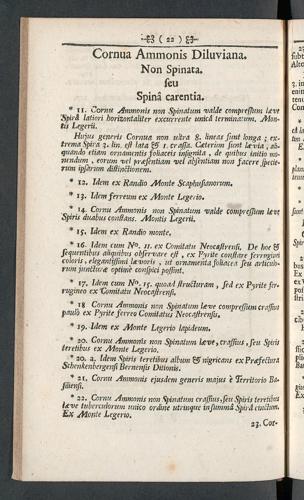 ( 22 )
Cornua Ammonis Diluviana.
Non Spinata.
seu
Spinâ carentia.
* 11. Cornu Ammonis non Spinatum valde compressum læve
Spirâ latiori horizontaliter excurrente unicâ terminatum. Mon-
tis Legerii.
Hujus generis Cornua non ultra 8. lineas sunt longa; ex-
trema Spira 3. lin. est lata & 1. crassa. Cæterum sunt lævia, ali-
quando etiam ornamentis foliaceis insignita, de quibus initio mo-
nendum, eorum vel præsentiam vel absentiam non facere specie-
rum ipsarum distinctionem.
* 12. Idem ex Randio Monte Scaphusianorum.
* 13. Idem ferreum ex Monte Legerio.
* 14. Cornu Ammonis non Spinatum valde compressum læve
Spiris duabus constans. Montis Legerii.
* 15. Idem ex Randio monte.
* 16. Idem cum No. 11. ex Comitatu Neocastrensi. De hoc &
sequentibus aliquibus observare est, ex Pyrite constare ferruginei
coloris, elegantissimi lævoris, ut ornamenta foliacea seu articulo-
rum juncturæ optimè conspici possint.
* 17. Idem cum No. 15. quoad structuram, sed ex Pyrite fer-
rugineo ex Comitatu Neocastrensi.
* 18 Cornu Ammonis non Spinatum læve compressum crassius
paulò ex Pyrite ferreo Comitatus Neocastrensis.
* 19. Idem ex Monte Legerio lapideum.
* 20. Cornu Ammonis non Spinatum læve, crassius, seu Spiris
teretibus ex Monte Legerio.
* 20. a. Idem Spiris teretibus album & nigricans ex Præfectura
Schenkenbergensi Bernensis Ditionis.
* 21. Cornu Ammonis ejusdem generis majus è Territorio Ba-
siliensi.
* 22. Cornu Ammonis non Spinatum crassius, seu Spiris teretibus
læve tuberculorum unico ordine utrinque in summâ Spirâ cinctum.
Ex Monte Legerio.
23. Cor-